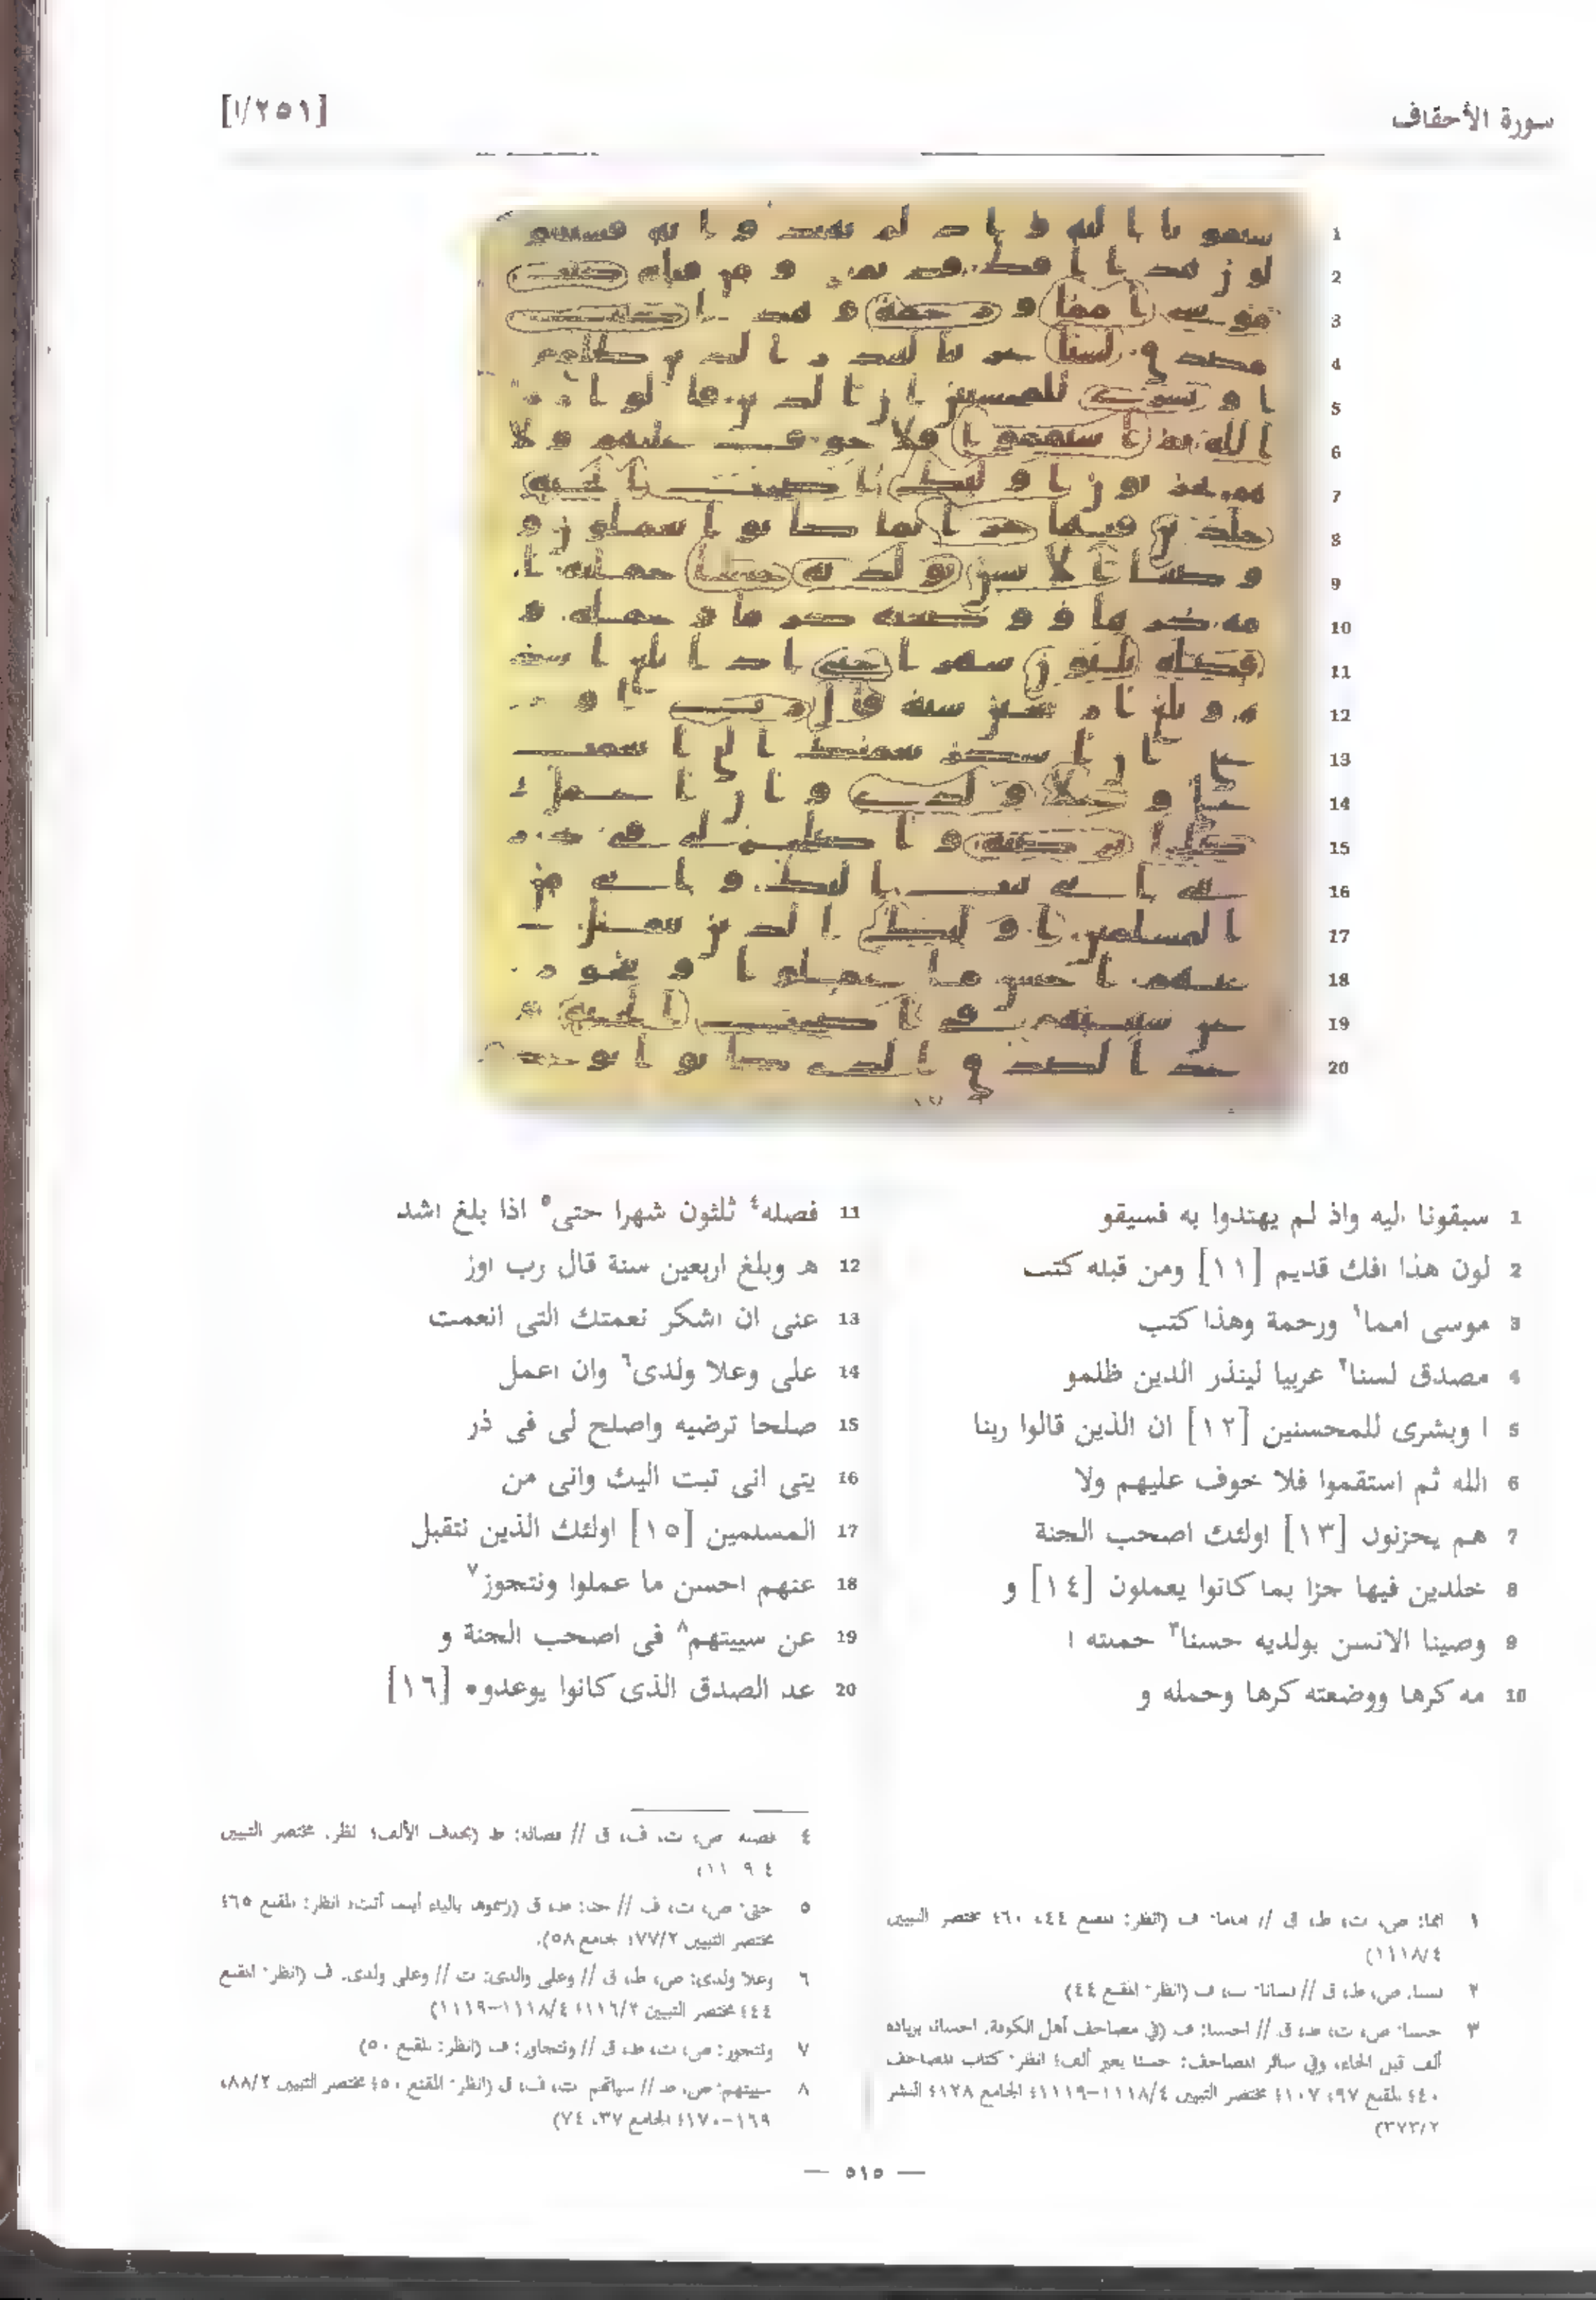 سورة الأحقاف
[٢٥١/ا]
1 سبقونا اليه واذ لم يهتدوا به فسيقو
2 لون هذا افك قديم [١١] ومن قبله كتب
3 موسى امما١ ورحمة وهذا كتب
4 مصدق لسنا٢ عربيا لينذر الذين ظلمو
5 ا وبشرى للمحسنين [١٢] ان الذين قالوا ربنا
6 الله ثم استقموا فلا خوف عليهم ولا
7 هم يحزنون [١٣] اولئك اصحب الجنة
8 خلدين فيها جزا بما كانوا يعملون [١٤] و
9 وصينا الانسن بولديه حسنا٣ حملته ا
10 مه كرها ووضعته كرها وحمله و
11 فصله٤ ثلثون شهرا حتى٥ اذا بلغ اشد
12 ه وبلغ اربعين سنة قال رب اوز
13 عنى ان اشكر نعمتك التى انعمت
14 على وعلا ولدى٦ وان اعمل
15 صلحا ترضيه واصلح لى فى ذر
16 يتى انى تبت اليك وانى من
17 المسلمين [١٥] اولئك الذين نتقبل
18 عنهم احسن ما عملوا ونتجوز٧
19 عن سييتهم٨ فى اصحب الجنة و
20 عد الصدق الذى كانوا يوعدوه [١٦]
١ امما: ص، ت، ط، ق // اماما: ف (انظر: المقنع ٤٤، ٤٦٠ مختصر التبيين
١١١٨/٤)
٢ لسنا: ص، ط، ق // لسانا: ت، ف (انظر: المقنع ٤٤)
٣ حسنا: ص، ت، ط، ق // احسنا: ف (في مصاحف أهل الكوفة، احسانا بزيادة
ألف قبل الحاء، وفي سائر المصاحف: حسنا بغير ألف؛ انظر: كتاب المصاحف
٤٤٠ المقنع ٩٧، ١٠٧؛ مختصر التبيين ١١١٨/٤-١١١٩؛ الجامع ١٢٨؛ النشر
٣٧٣/٢)
٤ فصله: ص، ت، ف، ق // فصاله: ط (بحذف الألف؛ انظر: مختصر التبيين
٥ حتى: ص، ت، ف // حتا: ط، ق (رسموها بالياء أينما أتت؛ انظر: المقنع ٤٦٥
مختصر التبيين ٧٧/٢؛ الجامع ٥٨).
٦ وعلا ولدى: ص، ط، ق // وعلى والدى: ت // وعلى ولدى: ف (انظر: المقنع
٤٤٤ مختصر التبيين ١١٦/٢؛ ١١١٨/٤-١١١٩)
٧ ونتجوز: ص، ت، ط، ق // ونتجاوز: ف (انظر: المقنع ٥٠)
٨ سييتهم: ص، ط // سياتهم: ت، ف، ق (انظر: المقنع ٤٥٠ مختصر التبيين ٨٨/٢،
١٦٩-١٧٠؛ الجامع ٣٧، ٧٤)
— ٥١٥ —